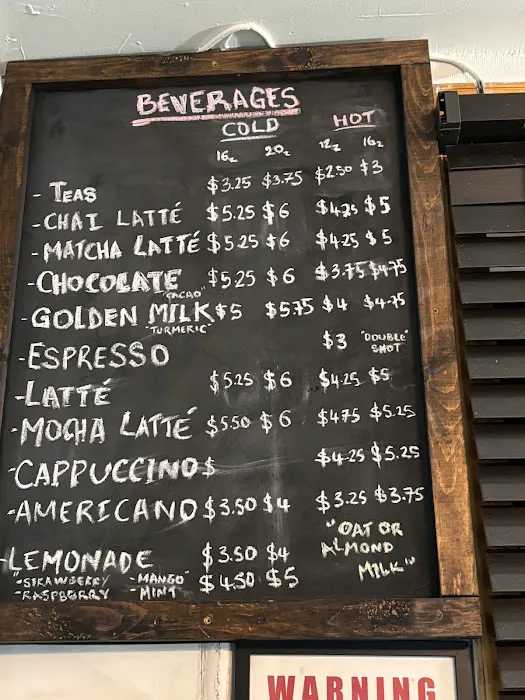 BEVERAGES
COLD HOT
16z 20z 12z 16z
- TEAS $3.25 $3.75 $2.50 $3
- CHAI LATTÉ $5.25 $6 $4.25 $5
- MATCHA LATTÉ $5.25 $6 $4.25 $5
- CHOCOLATE $5.25 $6 $3.75 $4.75
"CACAO"
- GOLDEN MILK $5 $5.75 $4 $4.75
"TURMERIC"
- ESPRESSO $3 "DOUBLE"
SHOT
- LATTÉ $5.25 $6 $4.25 $5
- MOCHA LATTÉ $5.50 $6 $4.75 $5.25
- CAPPUCCINO $ $4.25 $5.25
- AMERICANO $3.50 $4 $3.25 $3.75
LEMONADE $3.50 $4
"STRAWBERRY - MANGO" $4.50 $5
- RASPBERRY - MINT
"OAT OR
ALMOND
MILK"
WARNING